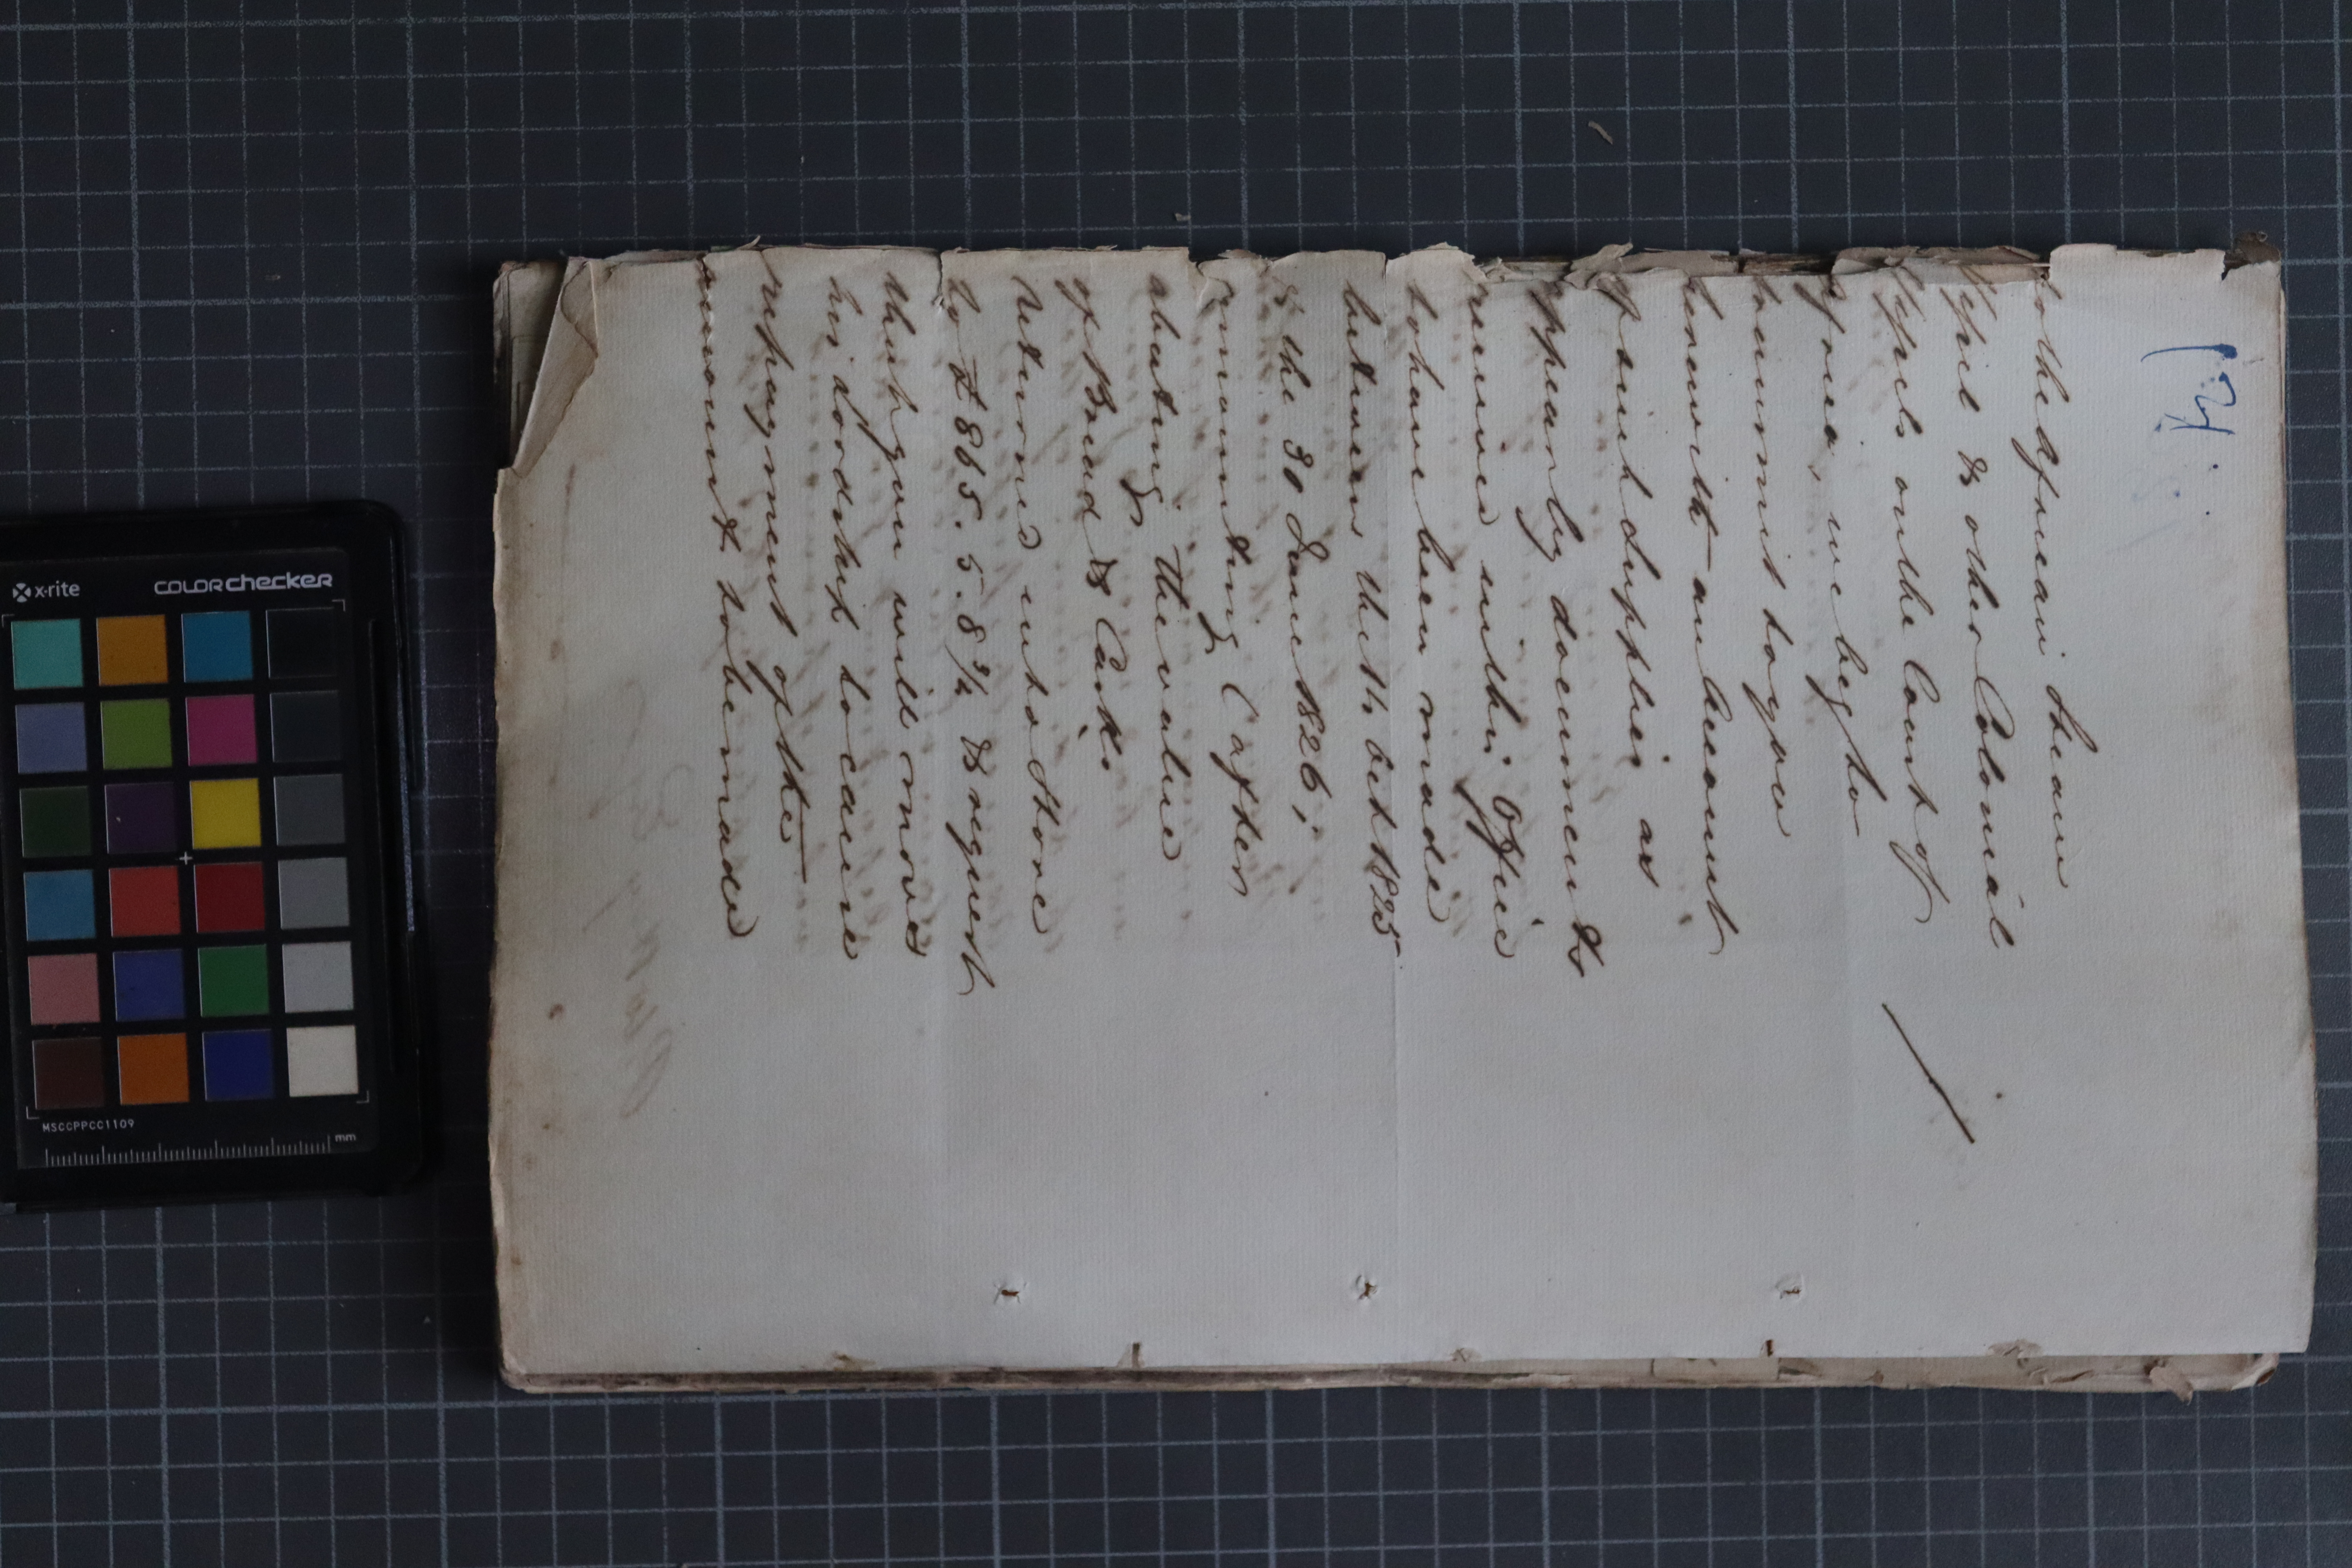 (2)
to the African Steam
Vessel & other Colonial
Vessels on the Coast of
Africa, we beg to
transmit to you
herewith an Account
of such supplies as
appear by documents
received in this Office
to have been made
between the 14 Oct 1825
& the 30 June 1826,
amounting (after
abating the value
of Bread & Casks
returned into Store
to £865. 5. 8 3/4 & request
that you will move
his Lordship to cause
repayment of the
amount to be made
x-rite
COLORchecker
MSCCPPCC1109
mm